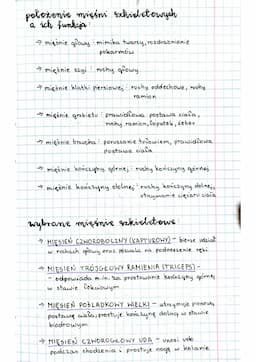 położenie mięśni szkieletowych
a ich funkcja
→ mięśnie głowy: mimika twarzy, rozdrabnianie
pokarmów
→ mięśnie szyi: ruchy głowy
→ mięśnie klatki piersiowej: ruchy oddechowe, ruchy
ramion
→ mięśnie grzbietu: prawidłowa postawa ciała,
ruchy ramion, łopatek, żeber
→ mięśnie brzucha: poruszanie tułowiem, prawidłowa
postawa ciała
→ mięśnie kończyny górnej: ruchy kończyny górnej
→ mięśnie kończyny dolnej: ruchy kończyny dolnej,
utrzymanie ciężaru ciała
wybrane mięśnie szkieletowe
→ MIĘSIEŃ CZWOROBOCZNY (KAPTUROWY) - bierze udział
w ruchach głowy oraz pozwala na podnoszenie ręki
→ MIĘSIEŃ TRÓJGŁOWY RAMIENIA (TRICEPS) -
- odpowiada m.in. za prostowanie kończyny górnej
w stawie łokciowym
→ MIĘSIEŃ POŚLADKOWY WIELKI - utrzymuje pionową
postawę ciała, prostuje kończynę dolną w stawie
biodrowym
→ MIĘSIEŃ CZWOROGŁOWY UDA - unosi udo
podczas chodzenia i prostuje nogę w kolanie